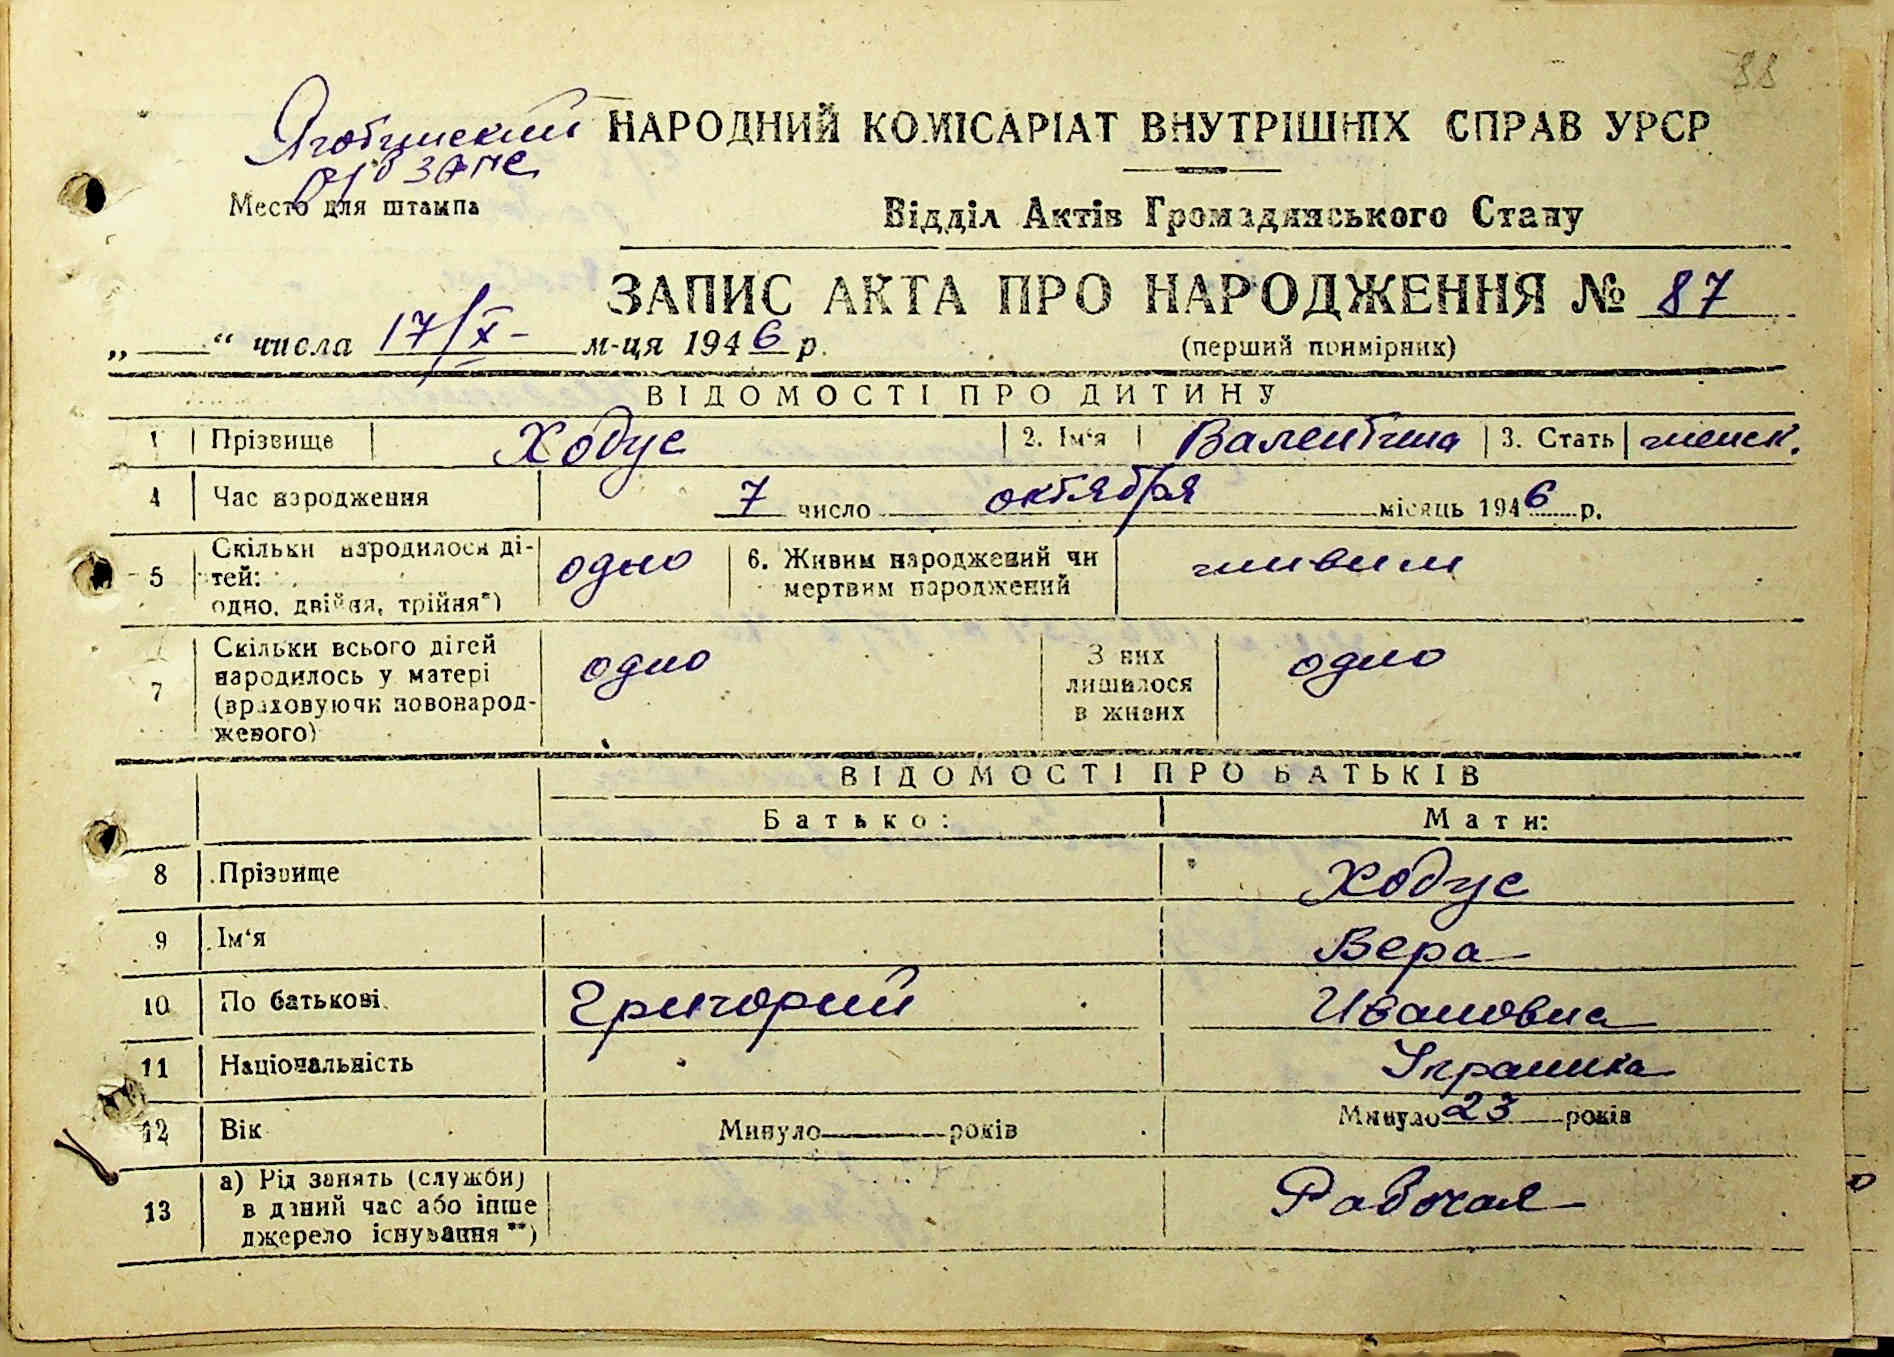 38
НАРОДНИЙ КОМІСАРІАТ ВНУТРІШНІХ СПРАВ УРСР
р/б загс
Место для штампа
Відділ Актів Громадянського Стану
ЗАПИС АКТА ПРО НАРОДЖЕННЯ № 87
„ “ числа 17/X- м-ця 1946 р.
(перший примірник)
ВІДОМОСТІ ПРО ДИТИНУ
1 Прізвище Ходус 2. Ім‘я Валентина 3. Стать женск.
4 Час народження 7 число октября місяць 1946 р.
5 Скільки народилося ді-
тей:
одно, двійня, трійня*) одно 6. Живим народжений чи
мертвим народжений живим
7 Скільки всього дітей
народилось у матері
(враховуючи новонарод-
женого) одно З них
лишилося
в живих одно
ВІДОМОСТІ ПРО БАТЬКІВ
Батько: Мати:
8 Прізвище Ходус
9 Ім‘я Вера
10 По батькові Григорий Ивановна
11 Національність Украинка
12 Вік Минуло років Минуло 23 років
13 а) Рід занять (служби)
в даний час або інше
джерело існування **) Рабочая